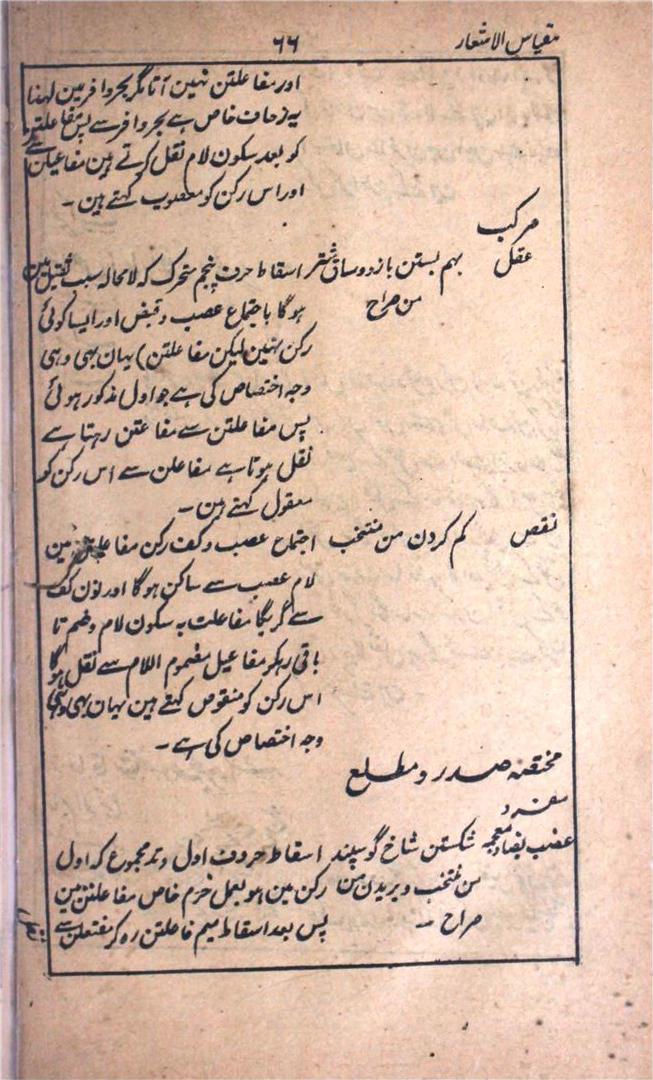 مقیاس الاشعار ۶۶
اور مفاعلتن نہین آتا مگر بحر وافر مین لہذا
یہ زحاف خاص ہے بحر وافر سے پس مفاعلتن
کو بعد سکون لام نقل کرتے ہین مفاعیلن سے
اور اس رکن کو معصوب کہتے ہین ۔
مرکب
عقل بہم بستن بازو و ساق شتر اسقاط حرف پنجم متحرک کہ لا محالہ سبب ثقیل مین
من صراح ہوگا باجتماع عصب و قبض اور ایسا کوئی
رکن نہین لیکن مفاعلتن) یہان بھی وہی
وجہ اختصاص کی ہے جو اول مذکور ہوئی
پس مفاعلتن سے مفاعتن رہتا ہے
نقل ہوتا ہے مفاعلن سے اس رکن کو
معقول کہتے ہین ۔
نقص کم کردن من منتخب اجتماع عصب و کف رکن مفاعلتن مین
لام عصب سے ساکن ہوگا اور نون کف
سے گریگا مفاعلت بہ سکون لام و ضم تا
باقی رہکر مفاعیل مضموم اللام سے نقل ہوگا
اس رکن کو منقوص کہتے ہین یہان بھی وہی
وجہ اختصاص کی ہے ۔
مختصہ صدر و مطلع
مفرد
عضب بضاد معجمہ شکستن شاخ گوسپند اسقاط حروف اول وتد مجموع کہ اول
من منتخب و بریدن من رکن مین ہو بعمل خرم خاص مفاعلتن مین
صراح ۔ پس بعد اسقاط میم فاعلتن رہ کر مفتعلن سے